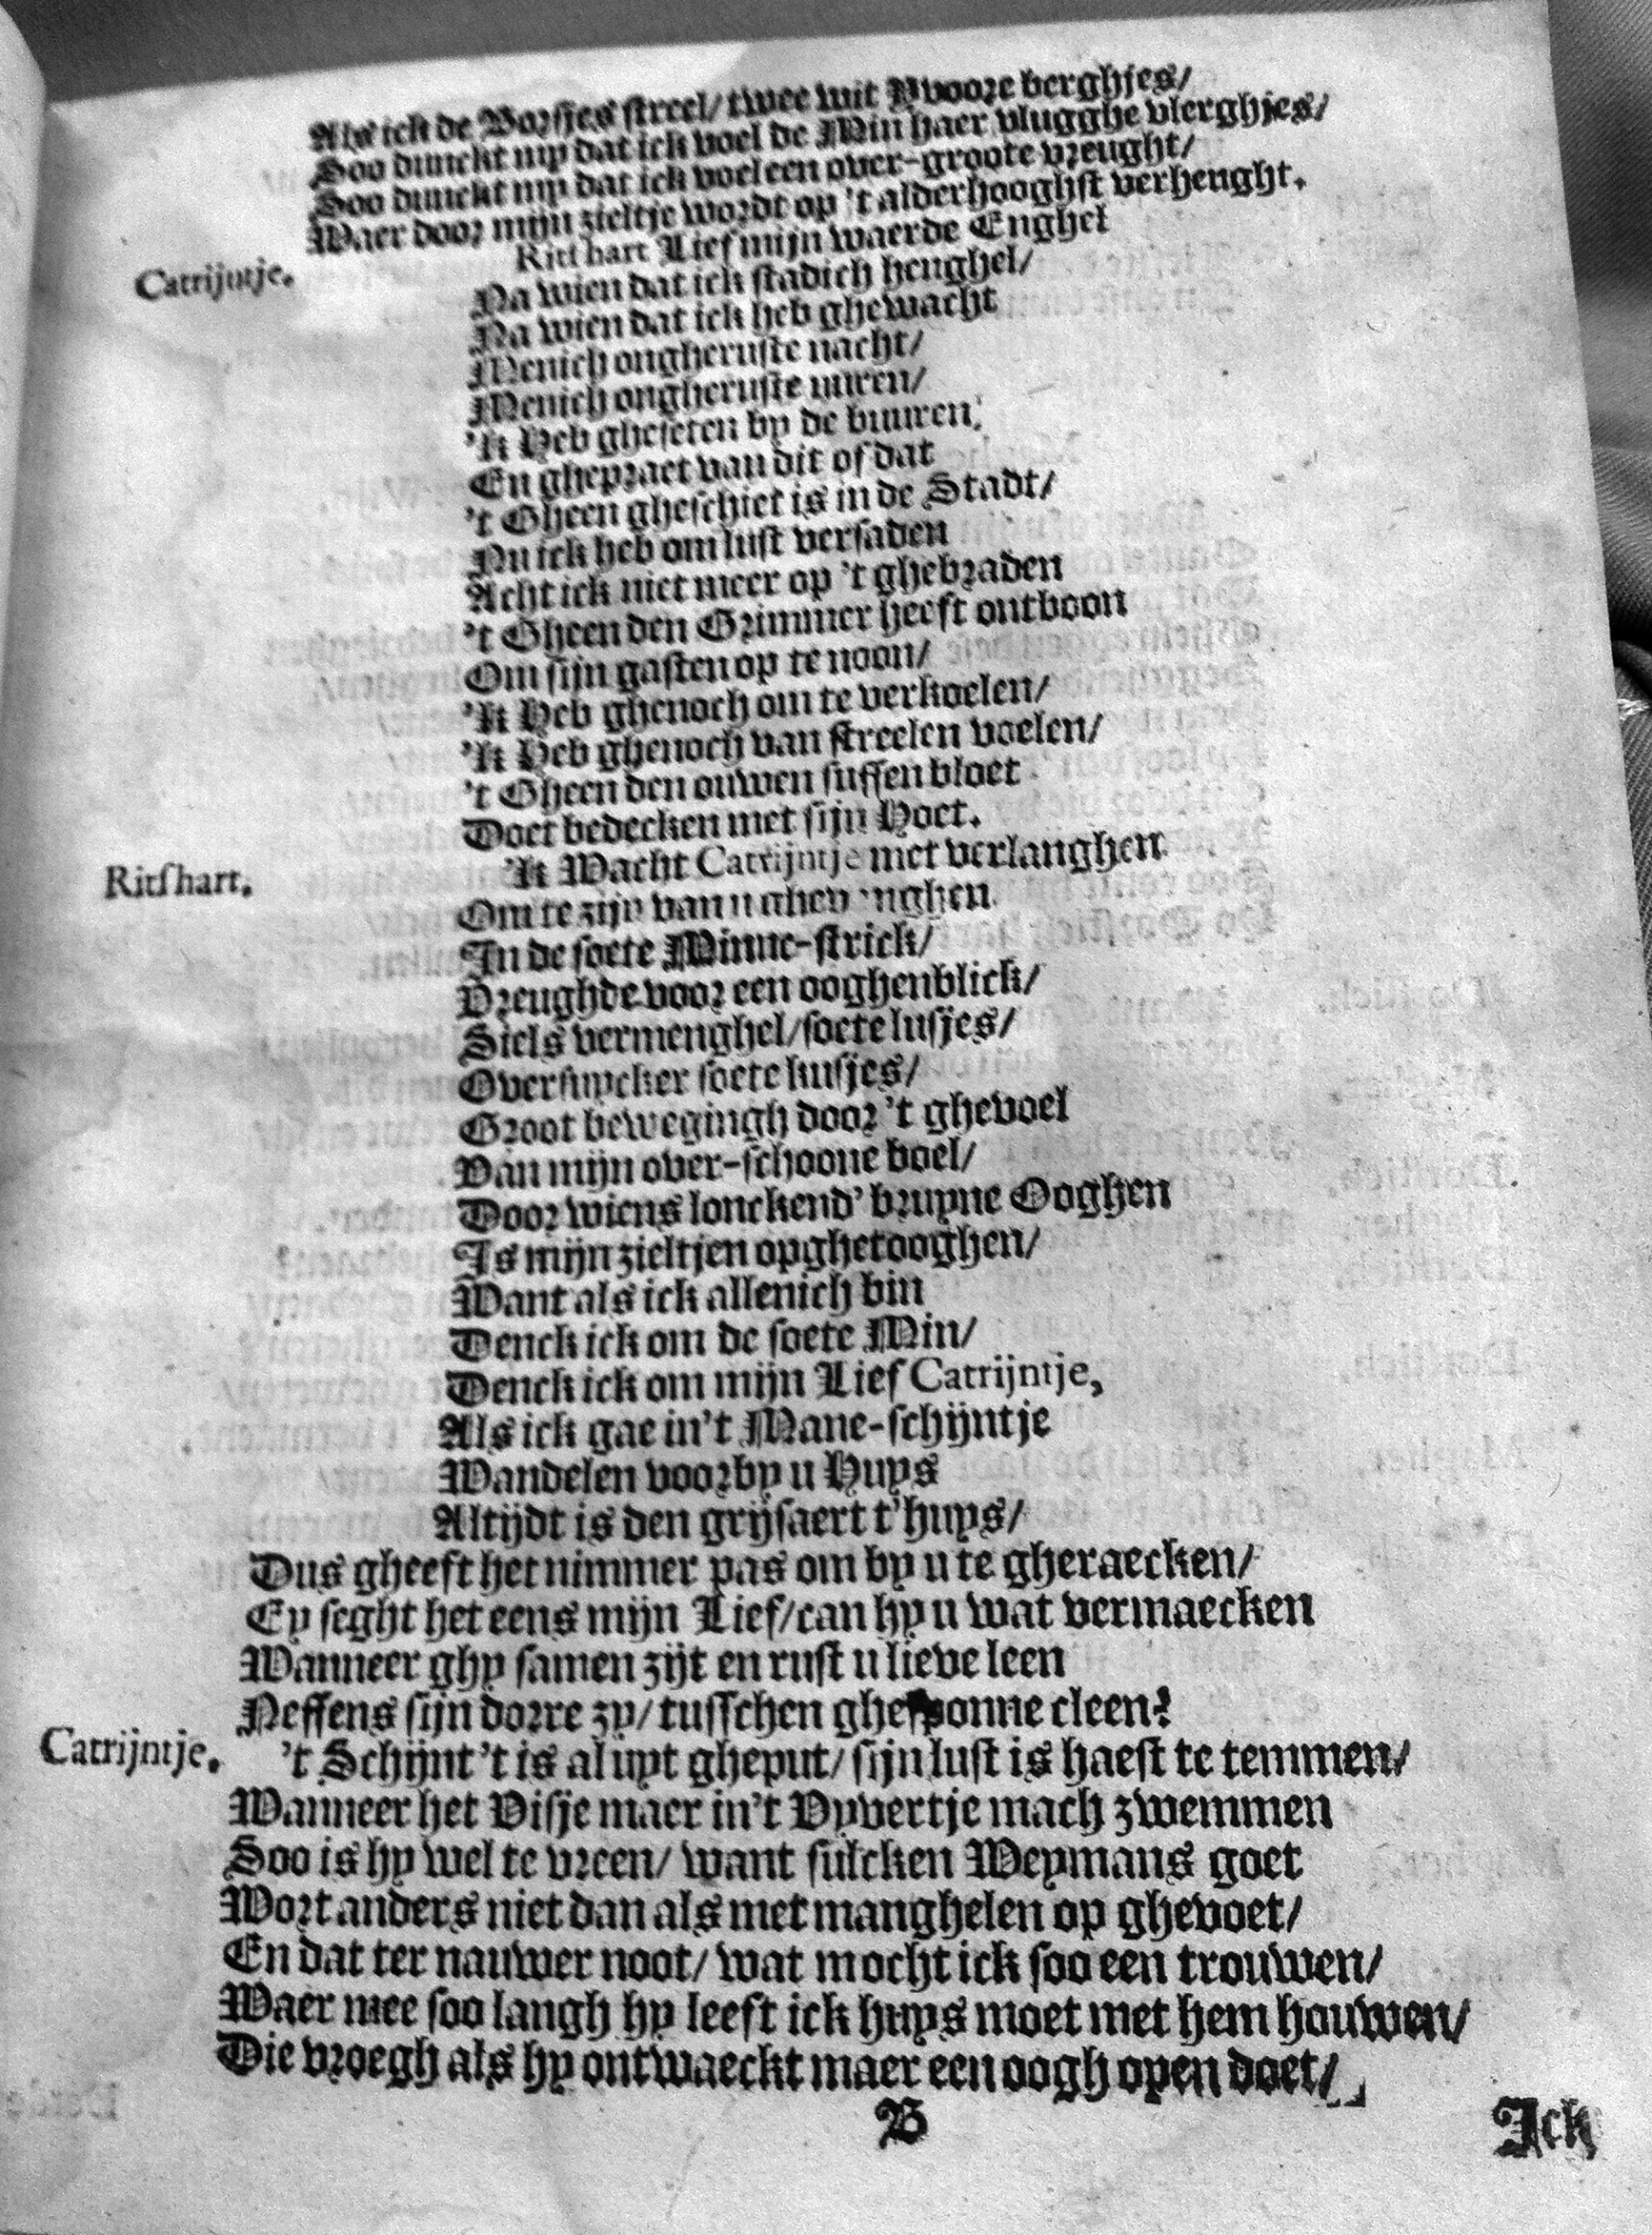 Als ick de Borsjes streel/ twee wit Yvoore berghjes/
Soo dunckt my dat ick voel de Min haer vlugghe vlerghjes/
Soo dunckt my dat ick voel een over-groote vreught/
Waer door mijn zieltje wordt op 't alderhooghst verheught.
Catrijntje. Ritshart Lief mijn waerde Enghel
Na wien dat ick stadich henghel/
Na wien dat ick heb ghewacht
Menich ongheruste nacht/
Menich ongheruste uuren/
'k Heb gheseten by de buuren,
En ghepraet van dit of dat
't Gheen gheschiet is in de Stadt/
Nu ick heb om lust versaden
Acht ick niet meer op 't ghebraden
't Gheen den Grimmer heeft ontboon
Om sijn gasten op te noon/
'k Heb ghenoch om te verkoelen/
'k Heb ghenoch van streelen voelen/
't Gheen den ouwen suffen bloet
Doet bedecken met sijn Hoet.
Ritshart. 'k Wacht Catrijntje met verlanghen
Om te zijn van u
In de soete Minne-strick/
Vreughde voor een ooghenblick/
Siels vermenghel/ soete lusjes/
Oversuycker soete kusjes/
Groot bewegingh door 't ghevoel
Van mijn over-schoone boel/
Door wiens lonckend' bruyne Ooghen
Is mijn zieltjen opghetooghen/
Want als ick allenich bin
Denck ick om de soete Min/
Denck ick om mijn Lief Catrijntje,
Als ick gae in't Mane-schijntje
Wandelen voorby u Huys
Altijdt is den grijsaert t'huys/
Dus gheeft het nimmer pas om by u te gheraecken/
Ey seght het eens mijn Lief/ can hy u wat vermaecken
Wanneer ghy samen zijt en rust u lieve leen
Neffens sijn dorre zy/ tusschen ghesponne cleen?
Catrijntje. 't Schijnt 't is al uyt gheput/ sijn lust is haest te temmen/
Wanneer het Visje maer in't Vyvertje mach zwemmen
Soo is hy wel te vreen/ want sulcken Weymans goet
Wort anders niet dan als met manghelen op ghevoet/
En dat ter nauwer noot/ wat mocht ick soo een trouwen/
Waer mee soo langh hy leeft ick huys moet met hem houwen/
Die vroegh als hy ontwaeckt maer een oogh open doet/
B
Ick